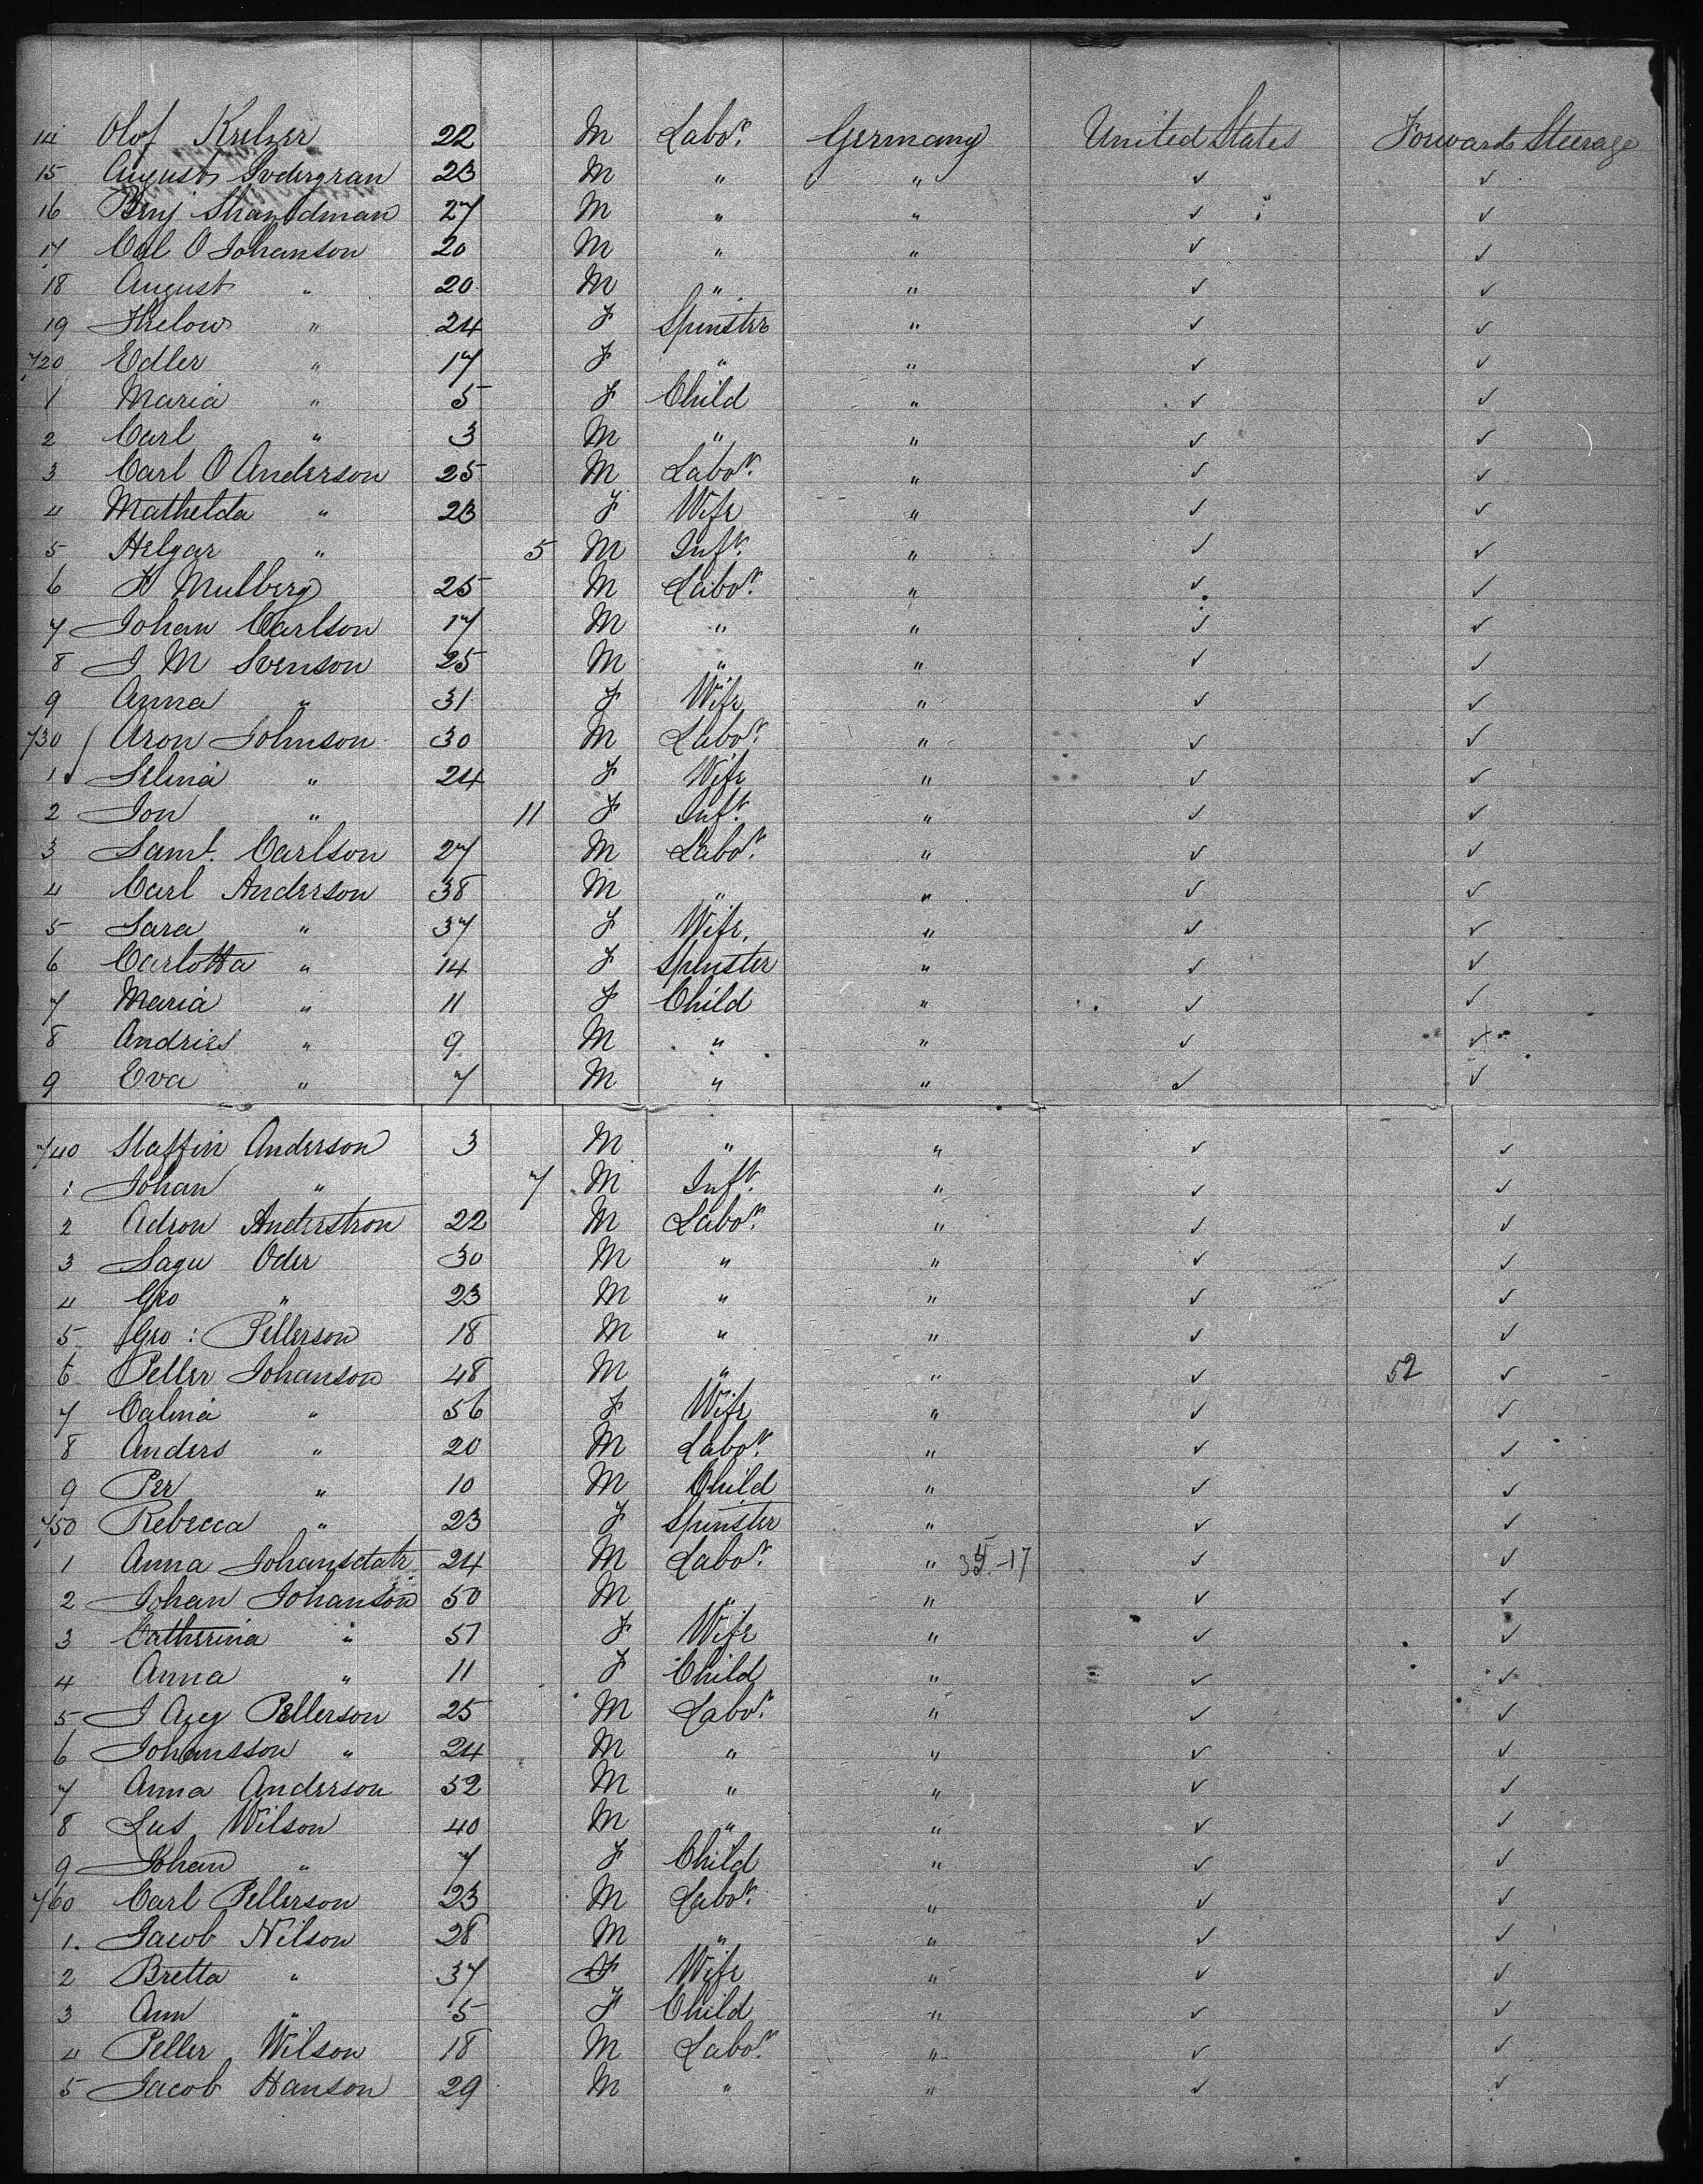 14 Olof Krelzer 22 M Labor. Germany United States Forward Steerage
15 August Sodergran 23 M " " ✓ ✓
16 Benj 27 M " " ✓ ✓
17 Cal O Johanson 20 M " " ✓ ✓
18 August " 20 M " " ✓ ✓
19 " 24 F Spinster " ✓ ✓
720 Edler " 17 F " " ✓ ✓
1 Maria " 5 F Child " ✓ ✓
2 Carl " 3 M " " ✓ ✓
3 Carl O Anderson 25 M Labor. " ✓ ✓
4 Mathelda " 23 F Wife " ✓ ✓
5 Helgar " 5 M Inft. " ✓ ✓
6 Mulberg 25 M Labor. " ✓ ✓
7 Johan Carlson 17 M " " ✓ ✓
8 J M Svenson 25 M " " ✓ ✓
9 Anna " 31 F Wife " ✓ ✓
730 Aron Johnson 30 M Labor. " ✓ ✓
1 Selina " 24 F Wife " ✓ ✓
2 Jon " 11 F Inft. " ✓ ✓
3 Saml. Carlson 27 M Labor. " ✓ ✓
4 Carl Anderson 38 M " " ✓ ✓
5 Sara " 37 F Wife " ✓ ✓
6 Carlotta " 14 F Spinster " ✓ ✓
7 Maria " 11 F Child " ✓ ✓
8 Andries " 9 M " " ✓ ✓
9 Eva " 7 M " " ✓ ✓
740 Staffin Anderson 3 M " " ✓ ✓
1 Johan " 7 M Inft. " ✓ ✓
2 Adron Anderstron 22 M Labor. " ✓ ✓
3 Sagu Oder 30 M " " ✓ ✓
4 Geo " 23 M " " ✓ ✓
5 Geo : Pellerson 18 M " " ✓ ✓
6 Peller Johanson 48 M " " ✓ 52 ✓
7 Calina " 56 F Wife " ✓ ✓
8 Anders " 20 M Labor. " ✓ ✓
9 Per " 10 M Child " ✓ ✓
750 Rebecca " 23 F Spinster " ✓ ✓
1 Anna Johansdatr 24 M Labor. " ✓ ✓
2 Johan Johanson 50 M " " ✓ ✓
3 Catherina " 51 F Wife " ✓ ✓
4 Anna " 11 F Child " ✓ ✓
5 J Aug Pellerson 25 M Labor. " ✓ ✓
6 Johansson " 24 M " " ✓ ✓
7 Anna Anderson 52 M " " ✓ ✓
8 Lus Wilson 40 M " " ✓ ✓
9 Johan " 7 F Child " ✓ ✓
760 Carl Pellerson 23 M Labor. " ✓ ✓
1. Jacob Nilson 28 M " " ✓ ✓
2 Bretta " 37 F Wife " ✓ ✓
3 Ann " 5 F Child " ✓ ✓
4 Peller Wilson 18 M Labor. " ✓ ✓
5 Jacob Hanson 29 M " " ✓ ✓